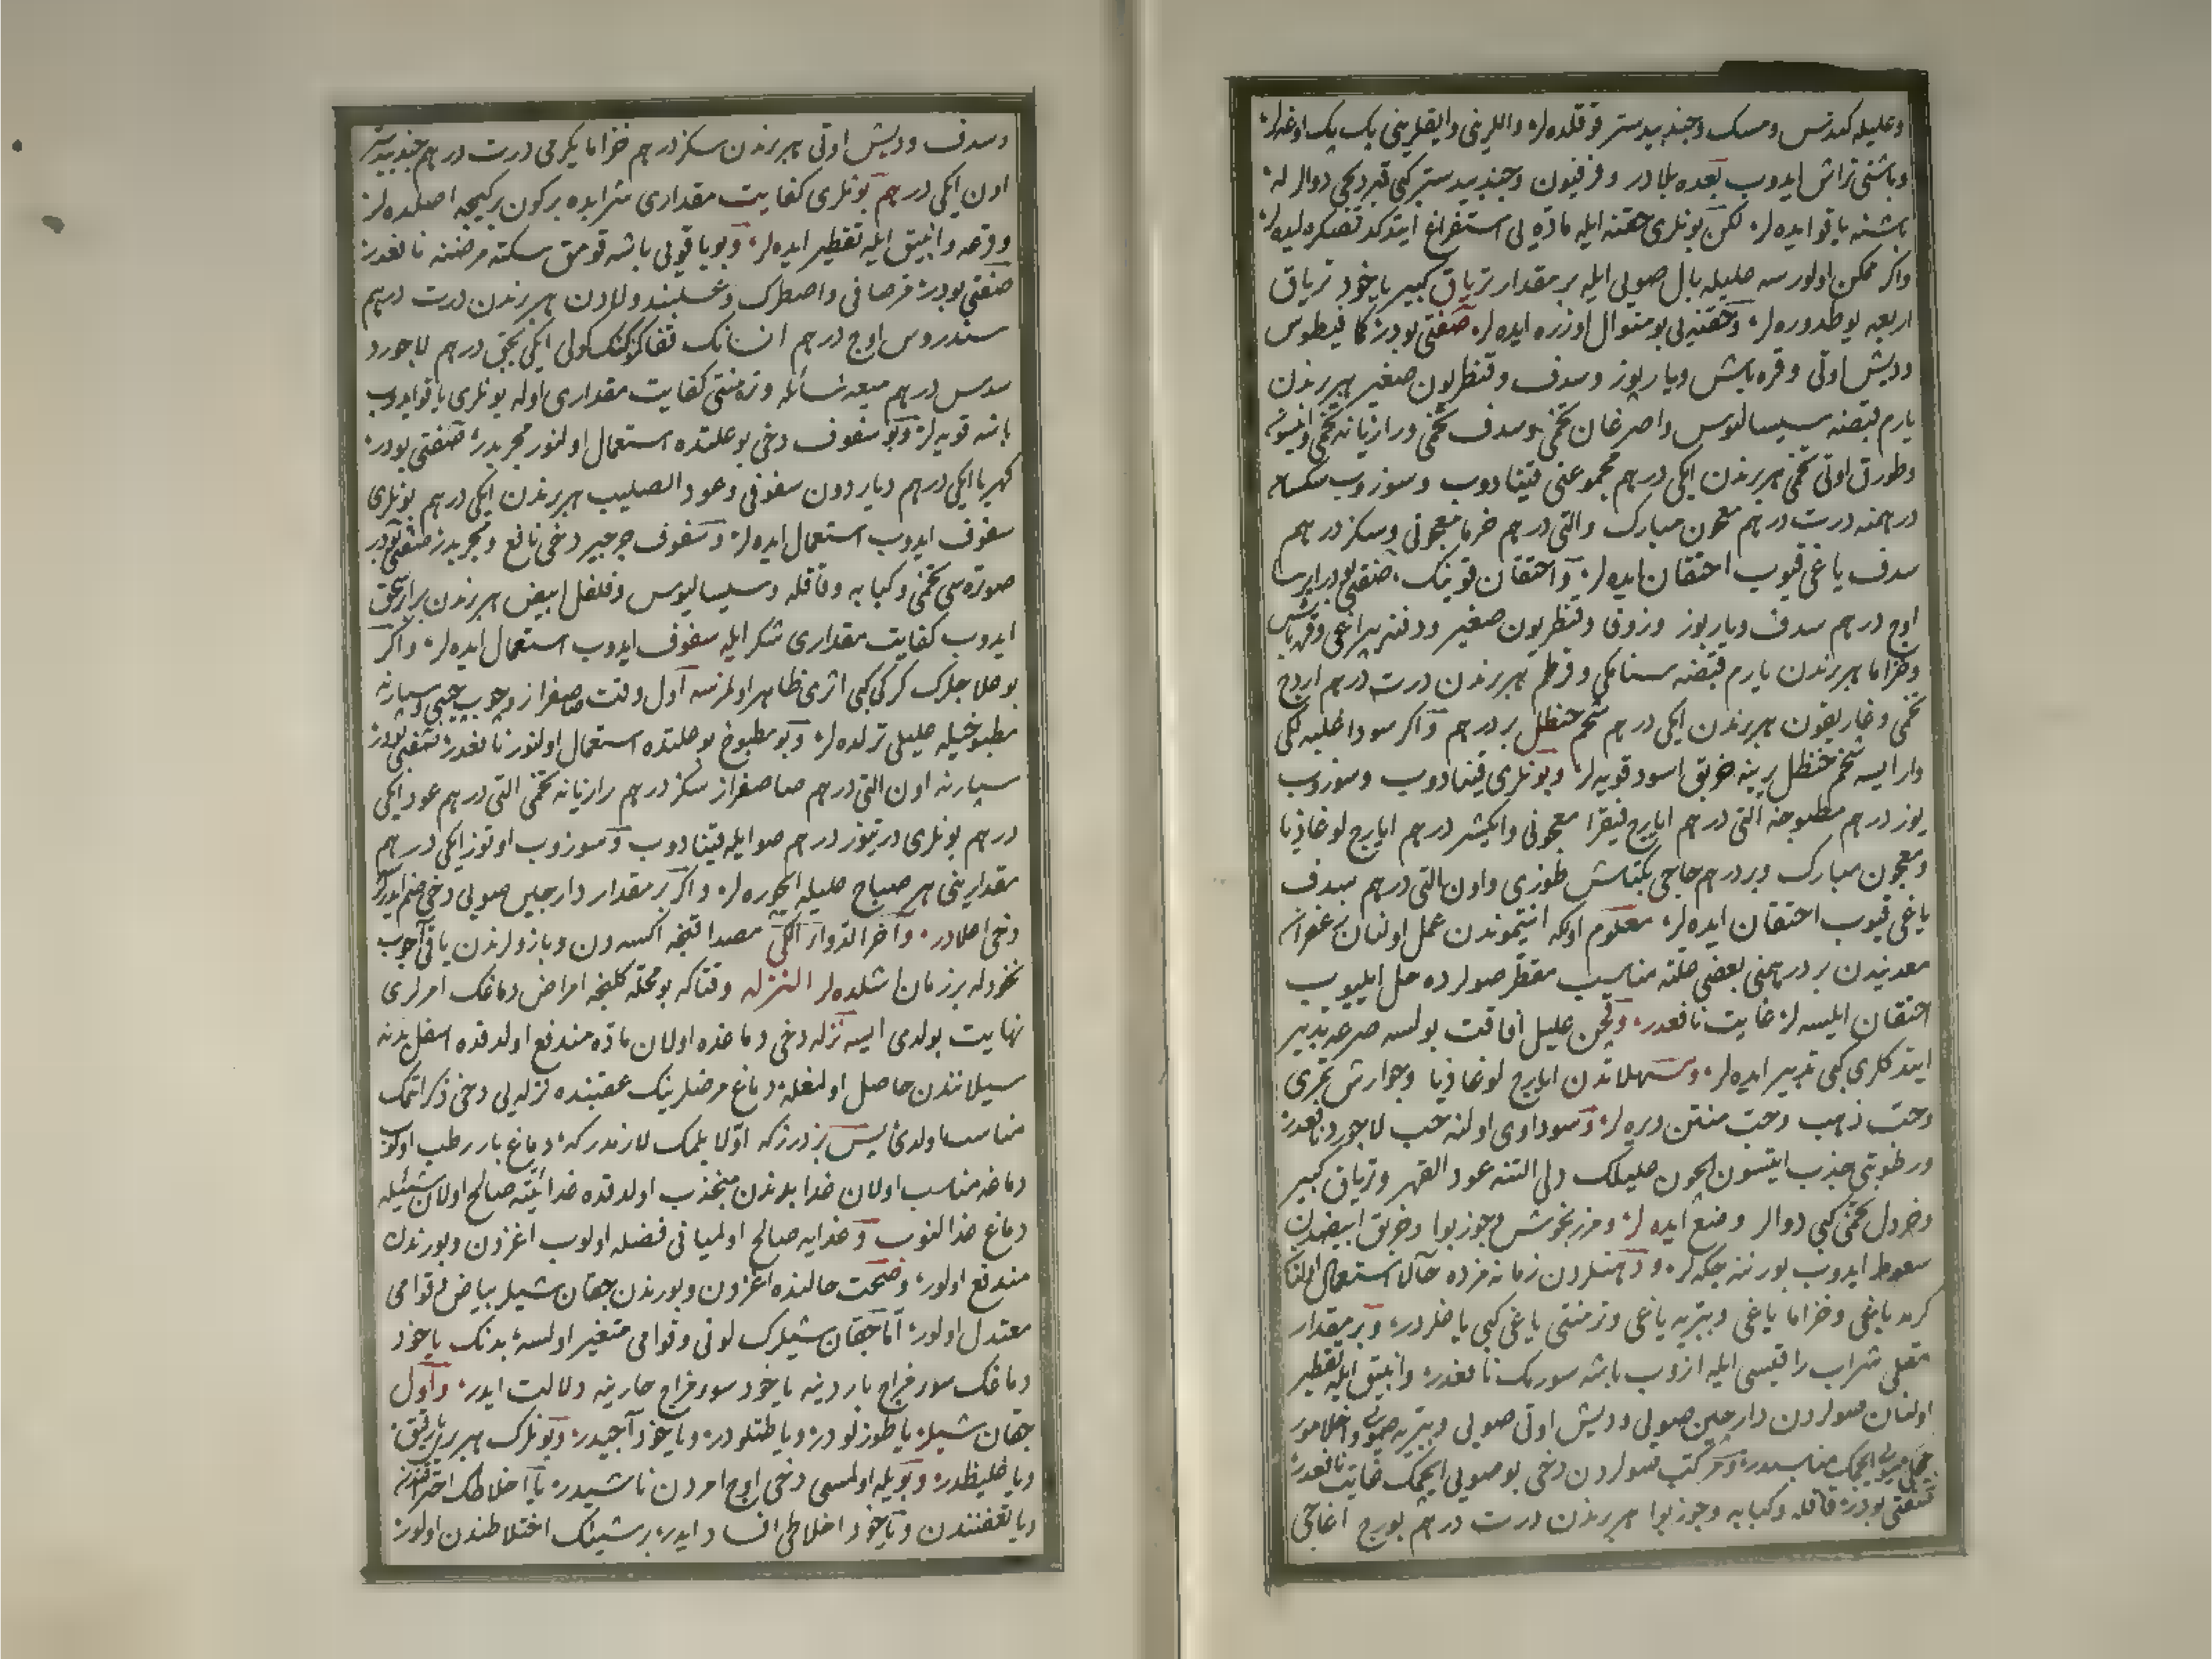 وعلیله کندس ومسک وجندبیدستر قوقلده‌لر واللرینی وایقلرینی بک بک اوغه‌لر
وباشنی تراش ایدوب بعده بلادر وفرفیون وجندبیدستر کبی قیزدیجی دوالر له
باشنه یاقو ایده‌لر لکن بونلری حقنه ایله ماده یی استفراغ ایتدکدنصکره ایده‌لر
واکر ممکن اولورسه علیله بال صویی ایله بر مقدار تریاق کبیر یاخود تریاق
اربعه یوطدوره‌لر وحقنه یی بو منوال اوزره ایده‌لر صنعتی بودر کافیطوس
ودیش اوتی وقره باش وپاپوز وسدف وقنطریون صغیر هر برندن
یارم قبضه سیسالیوس واصرغان تخمی وسدف تخمی ورازیانه تخمی وانیسون
وطورق اوتی تخمی هر برندن ایکی درهم مجموعنی قینادوب وسوزوب سکسان
درهمنه درت درهم معجون مبارک والتی درهم خرما معجونی وسکز درهم
سدف یاغی قیوب احتقان ایده‌لر واحتقان قوینک صنعتی بودر ایرسا
اوچ درهم سدف وپاپوز وزوفا وقنطریون صغیر ودفنه یپراغی وقره باش
وخزاما هر برندن یارم قبضه سنامکی وقرطم هر برندن درت درهم اردج
تخمی وغاریقون هر برندن ایکی درهم شحم حنظل بر درهم واکر سودا غلبه لکی
وار ایسه شحم حنظل یرینه خربق اسود قویه‌لر وبونلری قینادوب وسوزوب
یوز درهم مطبوخنه التی درهم ایارج فیقرا معجونی وایکیشر درهم ایارج لوغاذیا
ومعجون مبارک وبر درهم حاجی بکتاش طوزی واون التی درهم سدف
یاغی قیوب احتقان ایده‌لر معلوم اوله که انتیموندن عمل اولنان زعفران
معدنیدن بر درهمنی بعضی علته مناسب مقطر صولرده حل ایلیوب
احتقان ایلیسه‌لر غایت نافعدر وقچن علیل افاقت بولسه صرعه تدبیر
ایتدکلری کبی تدبیر ایده‌لر ومسهلاتدن ایارج لوغاذیا وجوارش تمری
وحب ذهب وحب منتن ویره‌لر وسوداوی اولنه حب لاجورد نافعدر
ورطوبتی جذب ایتسون ایچون علیلک دلی التنه عود القهر وتریاق کبیر
وخردل تخمی کبی دوالر وضع ایده‌لر ومرزنخوش وجوز بوا وخربق ابیضدن
سعوط ایدوب بورننه چکه‌لر ودهنلردن زمانه مزده حالا استعمال اولنان
کرد یاغی وخزاما یاغی وببریه یاغی وترمنتی یاغی کبی یاغلردر وبر مقدار
متقلی شراب راقیسی ایله ازوب باشه سورمک نافعدر وانبیق ایله تقطیر
اولنان صولردن دارچین صویی ودیش اوتی صویی وببریه صویی واخلامور
چچکی صویی ایچمک مناسبدر ومرکب صولردن دخی بو صویی ایچمک غایت نافعدر
صنعتی بودر قاقله وکبابه وجوز بوا هر برندن درت درهم بورج اغاجی
وسدف ودیش اوتی هر برندن سکز درهم خزاما یکرمی درت درهم جندبیدستر
اون ایکی درهم بونلری کفایت مقداری شرابده بر کون بر کیجه اصلده‌لر
وقرعه وانبیق ایله تقطیر ایده‌لر وبو یاقویی باشه قومق سکته مرضنه نافعدر
صنعتی بودر قره صافی واصطرک وعسلبند ولادن هر برندن درت درهم
سندروس اوچ درهم انسانک قفا کمکنک کولی ایکی بچق درهم لاجورد
سدس درهم میعه سائله وترمنتی کفایت مقداری اوله بونلری یاقو ایدوب
باشه قویه‌لر وبو سفوف دخی بو علتده استعمال اولنور مجربدر صنعتی بودر
کهربا ایکی درهم دیاردون سفوفی وعود الصلیب هر برندن ایکی درهم بونلری
سفوف ایدوب استعمال ایده‌لر وسفوف جرجیر دخی نافع ومجربدر صنعتی بودر
صو تره سی تخمی وکبابه وقاقله وسیسالیوس وفلفل ابیض هر برندن برابر سحق
ایدوب کفایت مقداری شکر ایله سفوف ایدوب استعمال ایده‌لر واکر
بو علاجلرک کرکی کبی اثری ظاهر اولمزسه اول وقت صاصفراز وچوب چینی وسپارنه
مطبوخیله علیلی ترلده‌لر وبو مطبوخ بو علتده استعمال اولنور نافعدر صنعتی بودر
سپارنه اون التی درهم صاصفراز سکز درهم رازیانه تخمی التی درهم عود ایکی
درهم بونلری درتیوز درهم صو ایله قینادوب وسوزوب اوتوز ایکی درهم
مقدارینی هر صباح علیله ایچوره‌لر واکر بر مقدار دارچین صویی دخی ضم ایدرلر
دخی اعلادر وآخر الدواء الکی مصداقنجه اکسه دن وبازولرندن یاقی آچوب
نخودله بر زمان اشلده‌لر النزله وقتاکه بو محله کلنجه امراض دماغک امرلری
نهایت بولدی ایسه نزله دخی دماغده اولان ماده مندفع اولدقده اسفل بدنه
سیلانندن حاصل اولنغله دماغ مرضلرینک عقبنده نزله یی دخی ذکر اتمک
مناسب اولدی پس بز درز که اولا بلمک لازمدر که دماغ بارد رطب اولوب
دماغه مناسب اولان غدا بدوندن منجذب اولدقده غدائیته صالح اولان شیئیله
دماغ غدالنوب وغدایه صالح اولمیانی فضله اولوب اغزدن وبورندن
مندفع اولور وصحت حالنده اغزدن وبورندن چقان شیلر بیاض وقوامی
معتدل اولور اما چقان شیلرک لونی وقوامی متغیر اولسه بدنک یاخود
دماغک سوء مزاج باردینه یاخود سوء مزاج حارینه دلالت ایدر واول
چقان شیلر یا طوزلودر ویا طتلودر ویاخود آجیدر وبونلرک هر بری یا رقیق
ویا غلیظدر وبویله اولمسی دخی اوچ امردن ناشیدر یا اخلاطک احتراقندن
ویا تعفنندن ویاخود اخلاطی افساد ایدر بر شیئک اختلاطندن اولور